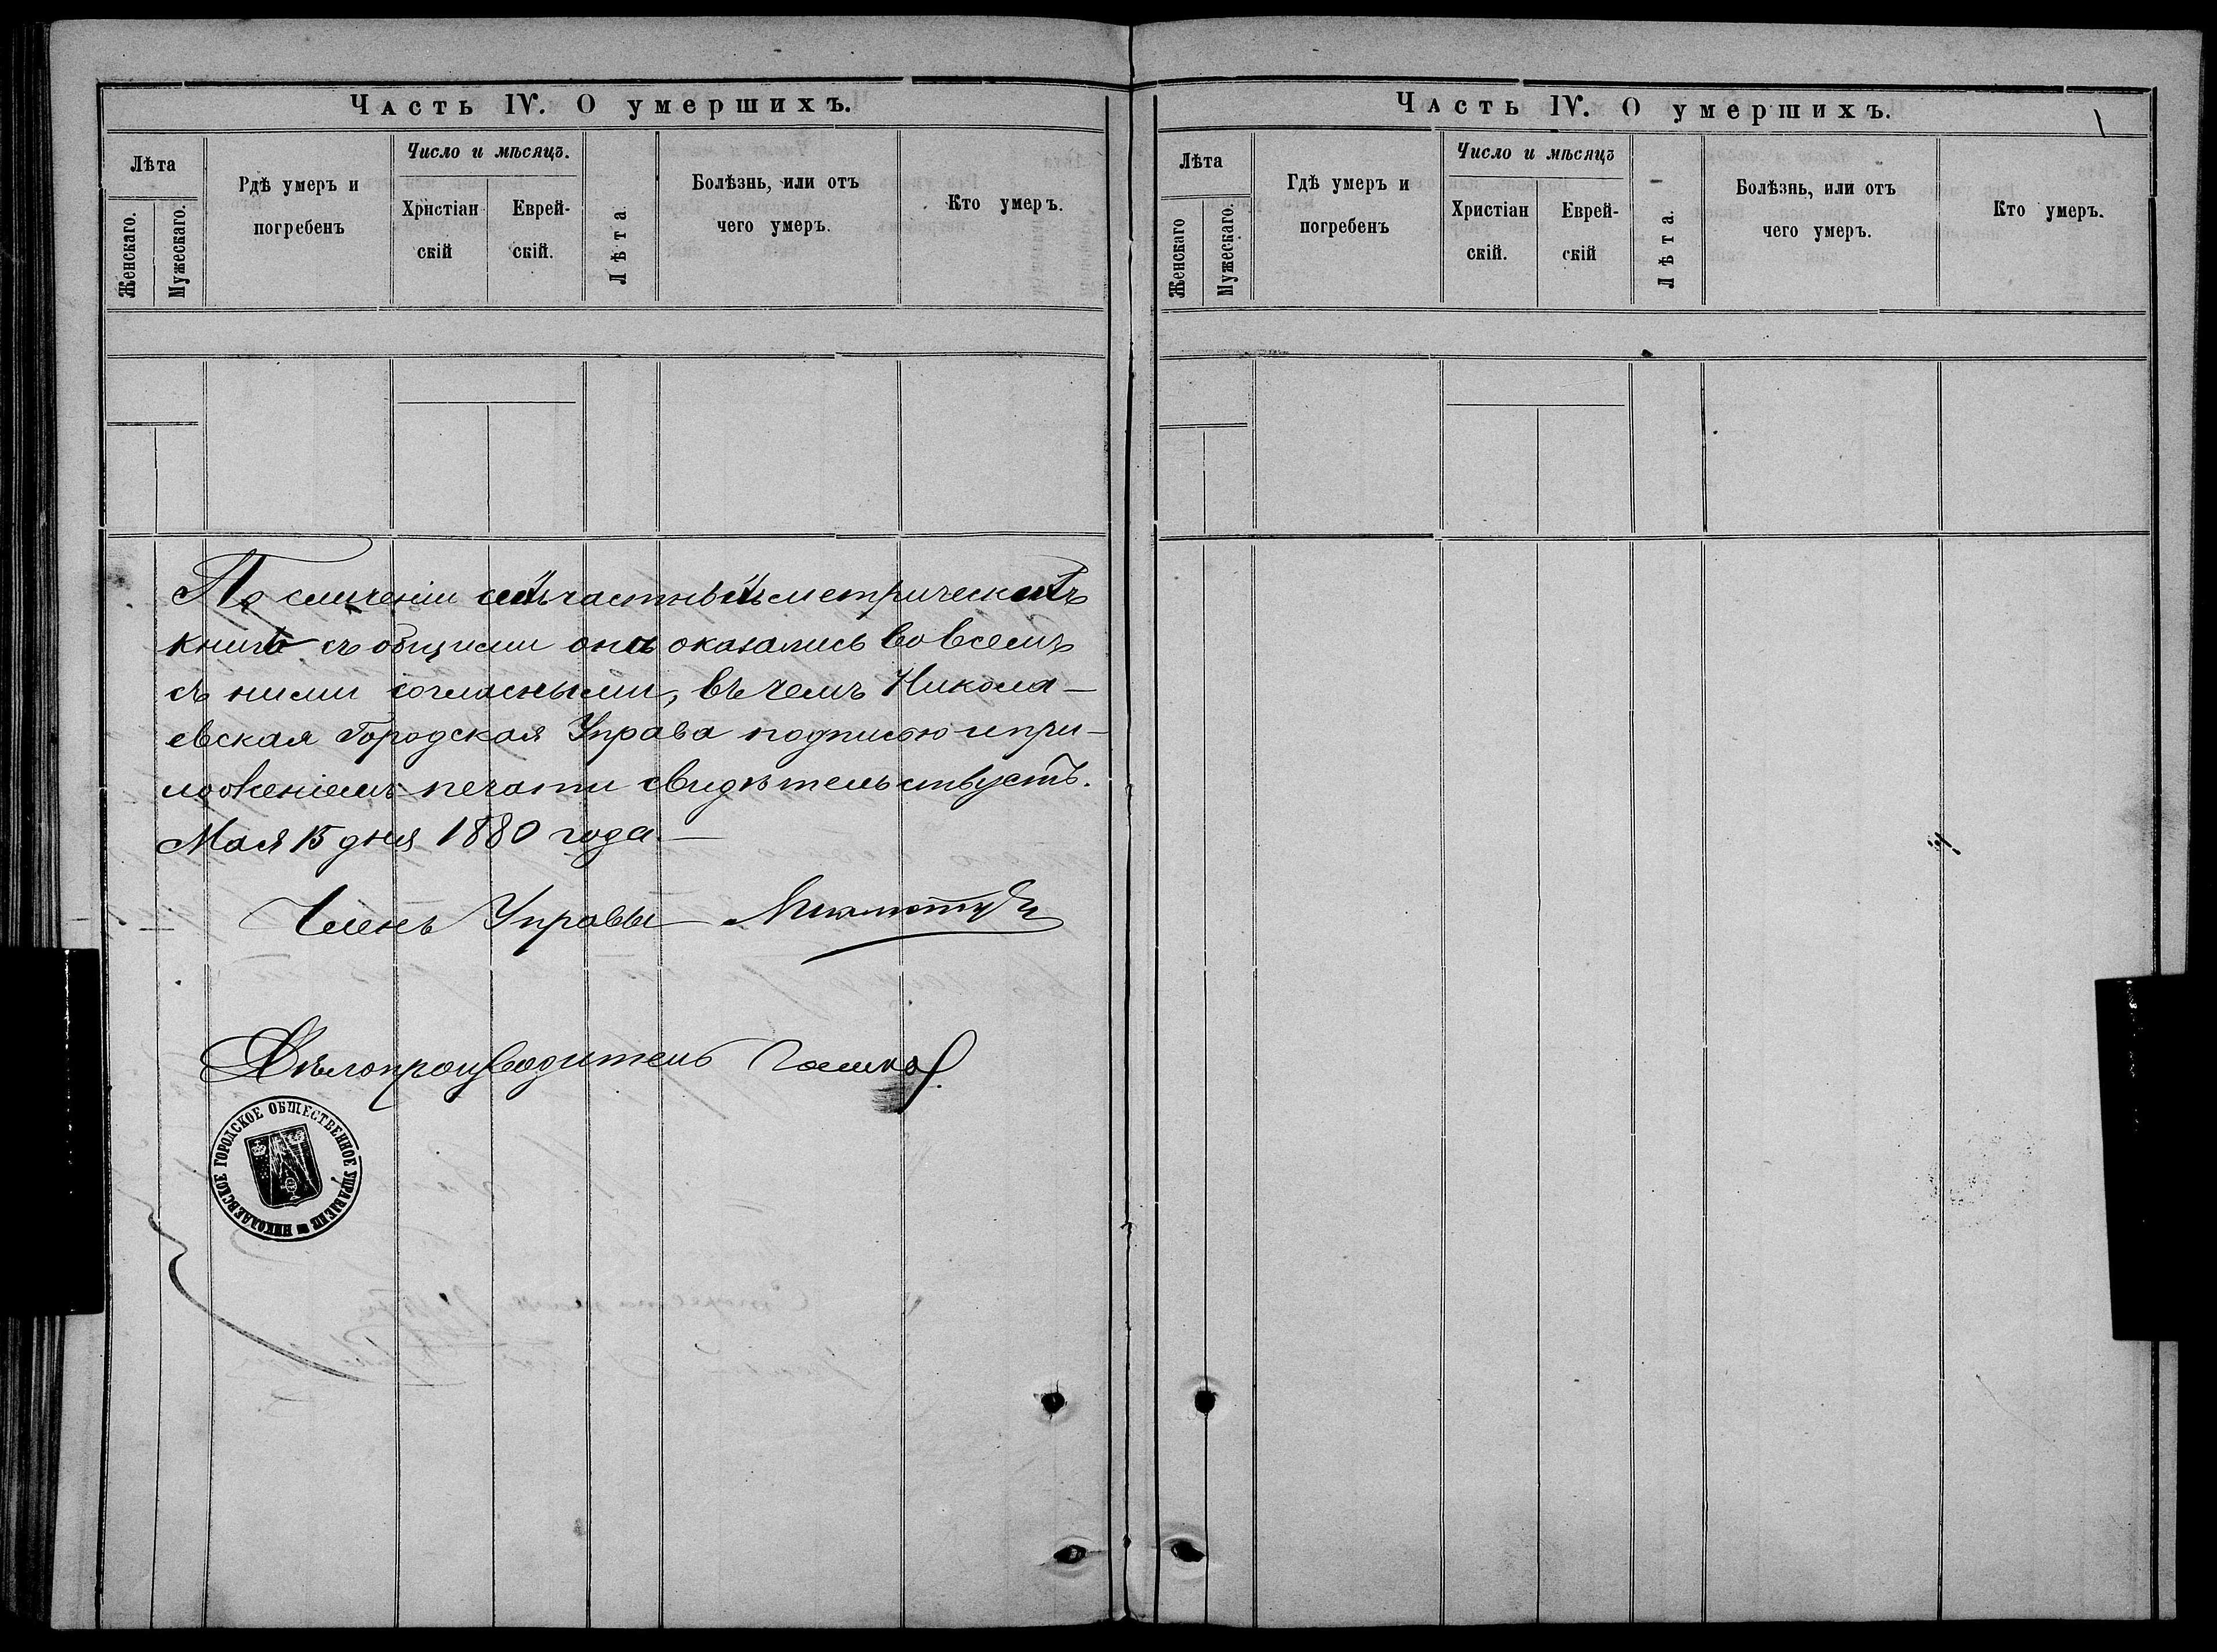 Часть IV. О умершихъ.
Лѣта
Женскаго.
Мужескаго.
Рдѣ умеръ и
погребенъ
Число и мѣсяцъ.
Христіан
скій
Еврей-
скій.
Лѣта.
Болѣзнь, или отъ
чего умеръ.
Кто умеръ.
По сличеніи сихъ частныхъ метрическихъ
книгъ съ общими они оказались во всемъ
съ ними согласными, въ чемъ Никола-
евская Городская Управа подписью и при-
ложеніемъ печати свидѣтельствуетъ.
Мая 15 дня 1880 года.
Членъ Управы
Дѣлопроизводитель
НИКОЛАЕВСКОЕ ГОРОДСКОЕ ОБЩЕСТВЕННОЕ УПРАВЛЕНІЕ
Часть IV. О умершихъ.
Лѣта
Женскаго
Мужескаго.
Гдѣ умеръ и
погребенъ
Число и мѣсяцъ
Христіан
скій.
Еврей-
скій
Лѣта.
Болѣзнь, или отъ
чего умеръ.
Кто умеръ.